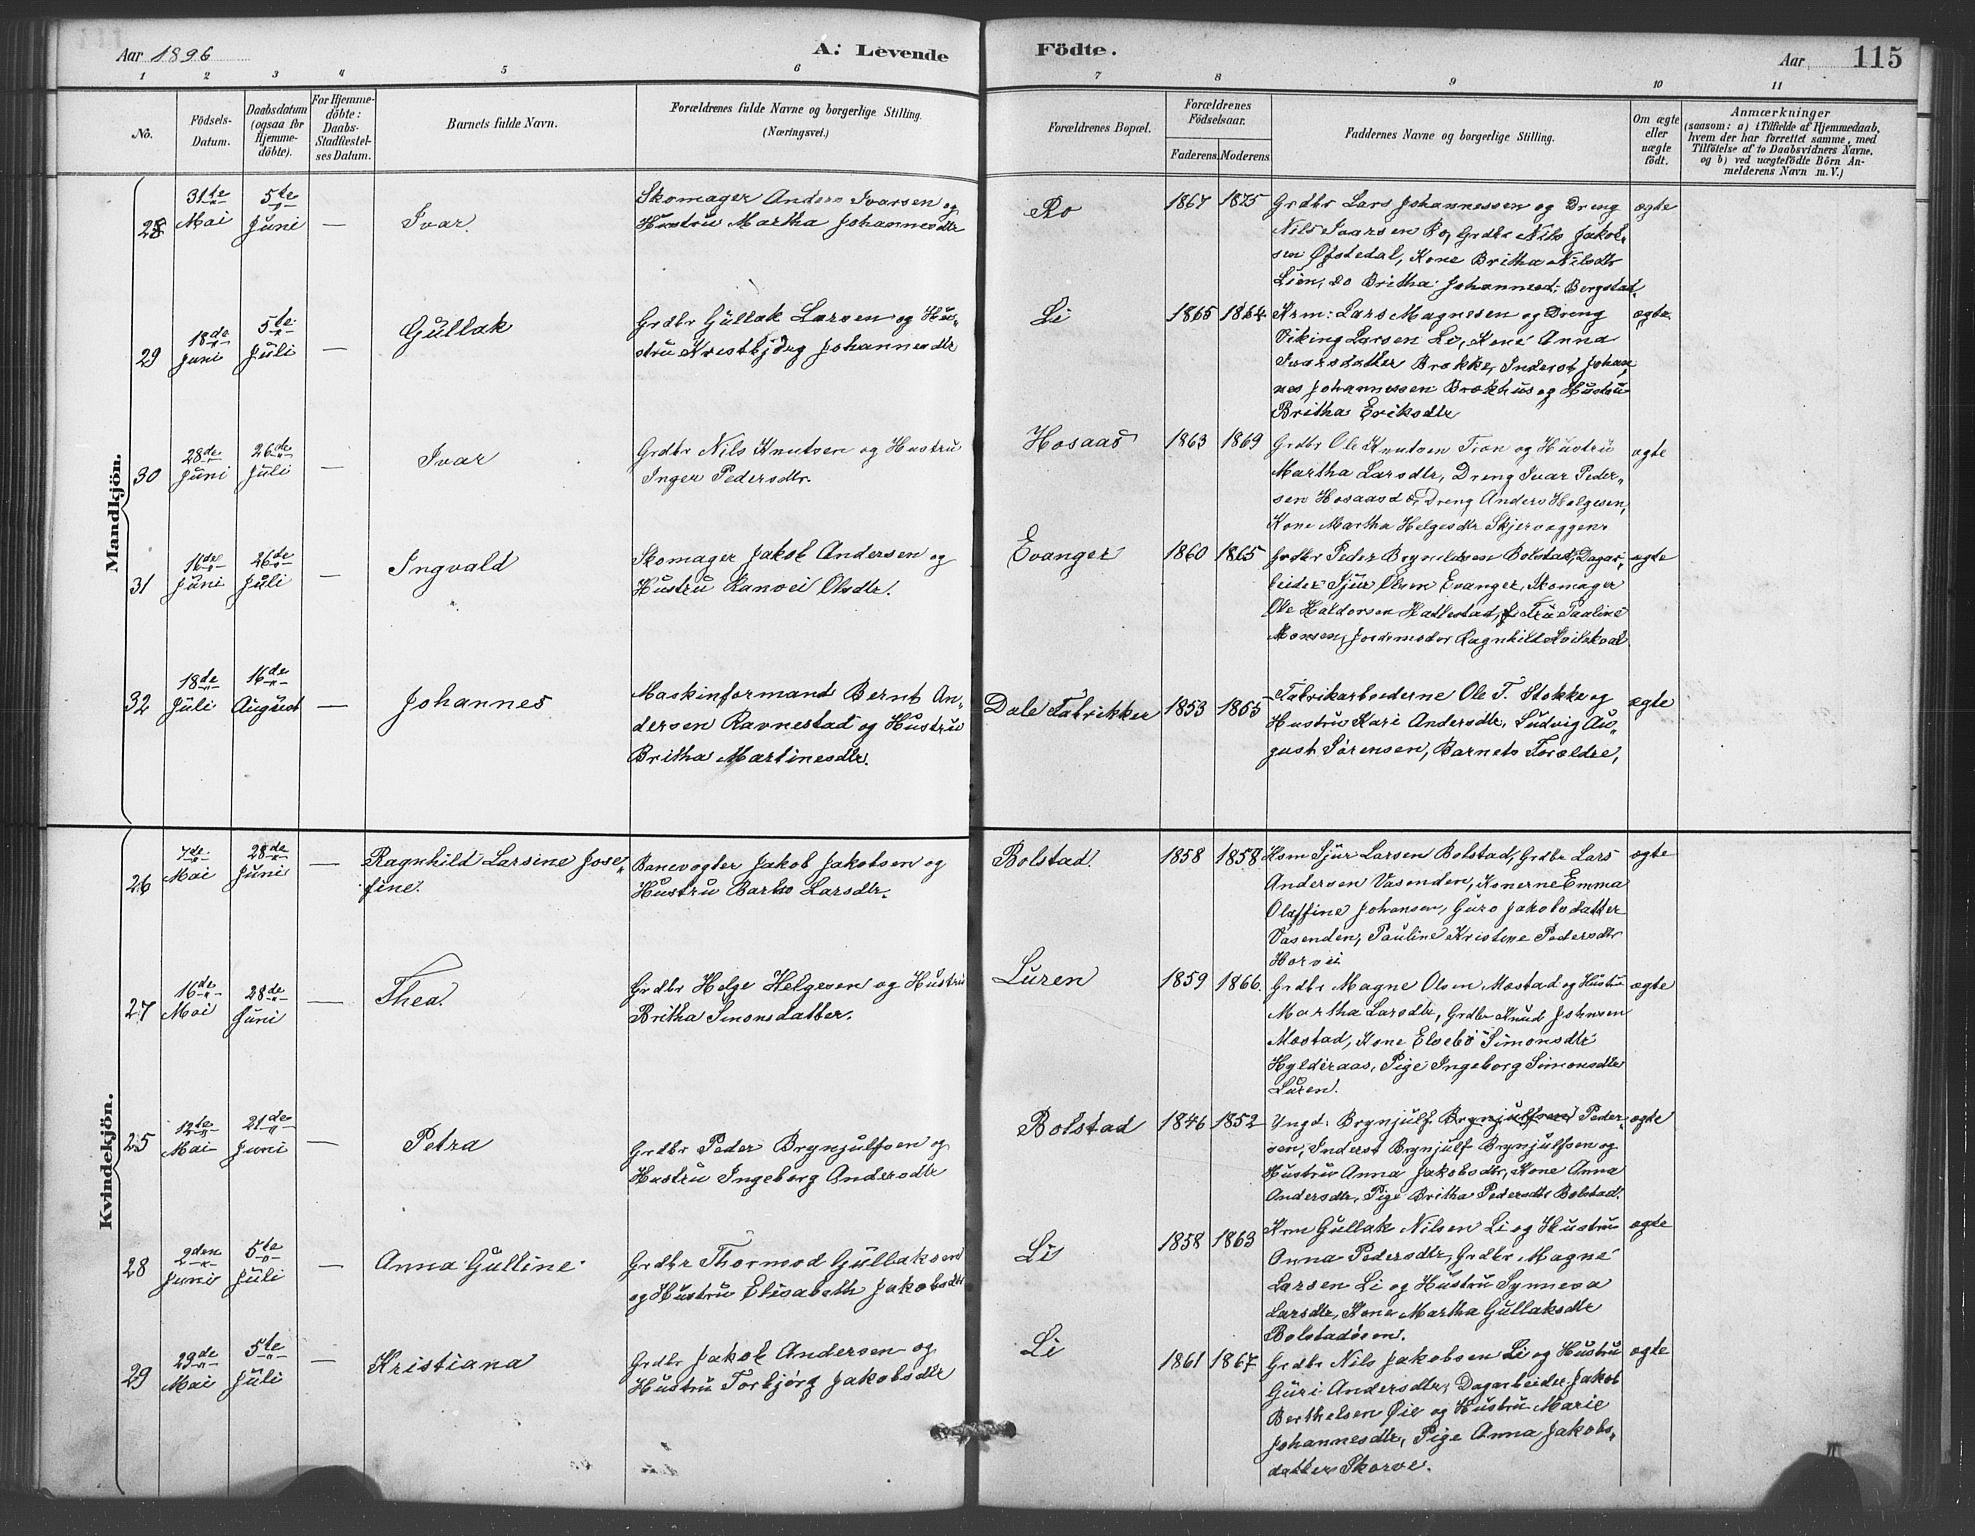 Aar 1896
A. Levende
Födte.
Aar
115
1 2 3 4 5 6 7 8 9 10 11
No.
Födsels-
Datum.
Daabsdatum
(ogsaa for
Hjemme-
döbte).
For Hjemme-
döbte:
Daabs-
Stadfæstel-
ses Datum.
Barnets fulde Navn.
Forældrenes fulde Navne og borgerlige Stilling.
(Næringsvei.)
Forældrenes Bopæl.
Forældrenes
Födselsaar.
Faderens. Moderens.
Faddernes Navne og borgerlige Stilling.
Om ægte
eller
uægte
födt.
Anmærkninger
(saasom: a) i Tilfælde af Hjemmedaab,
hvem der har forrettet samme, med
Tilföielse af to Daabsvidners Navne,
og b) ved uægtefödte Börn An-
melderens Navn m. V.)
Mandkjön.
28 31te Mai 5te Juni — Ivar.
Skomager Anders Ivarsen og
Hustru Martha Johannesdtr
Ro 1867 1875
Grdbr Lars Johannessen og Dreng
Nils Ivarsen Ro, Grdbr Nils Jakob-
sen Øfstedal, Kone Britha Nilsdtr
Lien, do Britha Johannesd: Bergstad.
ægte
29 18de Juni 5te Juli — Gullak
Grdbr Gullak Larsen og Hus-
stru Kristbjörg Johannesdtr
Li 1865 1864
Krm: Lars Magnesen og Dreng
Viking Larsen Li, Kone Anna
Ivarsdatter Brække, Inderst Johan
nes Johannessen Brækhus og Hustru
Britha Eriksdtr
ægte
30 28de Juni 26de Juli — Ivar
Grdbr Nils Knutsen og Hustru
Inger Pedersdtr.
Hosaas 1863 1869
Grdbr Ole Knutsen Fion og Hustru
Martha Larsdtr, Dreng Ivar Peder-
sen Hosaas d o, Dreng Anders Helgesen,
Kone Martha Helgesdtr Skjervæggen.
ægte
31 16de Juni 26de Juli — Ingvald
Skomager Jakob Andersen og
Hustru Ranvei Olsdtr.
Evanger 1860 1865
Grdbr Peder Brynildsen Bolstad, Dagar-
beider Sjur Olsen Evanger, Skomager
Ole Haldorsen Hallestad, Fru Pauline
Monsen, Jordemoder Ragnhild Kvilekval
ægte
32 18de Juli 16de August — Johannes
Maskinformand Bernt An-
dersen Ravnestad og Hustru
Britha Martinesdtr.
Dale Fabrikker 1853 1865
Fabrikarbeiderne Ole T. Stokke og
Hustru Kari Andersdtr, Ludvig Au-
gust Sørensen, Barnets Forældre,
ægte
Kvindekjön.
26 7de Mai 28de Juni — Ragnhild Larsine Jose-
fine.
Banevogter Jakob Jakobsen og
Hustru Barbro Larsdtr.
Bolstad. 1858 1858
Hsm Sjur Larsen Bolstad, Grdbr Lars
Andersen Vasenden, Konerne Emma
Olaffine Johansen, Guro Jakobsdatter
Vasenden, Pauline Kristine Pedersdtr
Horvei
ægte
27 16de Mai 28de Juni — Thea.
Grdbr Helge Helgesen og Hustru
Britha Simonsdatter.
Luren 1859 1866.
Grdbr Magne Olsen Mostad og Hustru
Martha Larsdtr, Grdbr Knud Johnsen
Mostad, Kone Elsebö Simonsdtr
Hylderaas, Pige Ingeborg Simonsdtr
Luren.
ægte
25 12te Mai 21de Juni — Petra
Grdbr Peder Brynjulfsen og
Hustru Ingeborg Andersdtr
Bolstad 1846 1852
Yngd: Brynjulf Brynjulfsen Peder-
sen, Inderst Brynjulf Brynjulfsen og
Hustru Anna Jakobsdtr, Kone Anna
Andersdtr, Pige Britha Pedersdtr Bolstad.
ægte
28 2den Juni 5te Juli — Anna Gulline
Grdbr Thormod Gullaksen
og Hustru Elisabeth Jakobsdtr
Li 1858 1863
Krm Gullak Nilsen Li og Hustru
Anna Pedersdtr, Grdbr Magne
Larsen Li og Hustru Synneva
Larsdtr, Kone Martha Gullaksdtr
Bolstadösen.
ægte
29 29de Mai 5te Juli — Kristiana
Grdbr Jakob Andersen og
Hustru Torbjörg Jakobsdtr
Li 1861 1867
Grdbr Nils Jakobsen Li og Hustru
Guri Andersdtr, Dagarbeider Jakob
Berthelsen Øie og Hustru Marie
Johannesdtr, Pige Anna Jakobs-
datter Skorve.
ægte